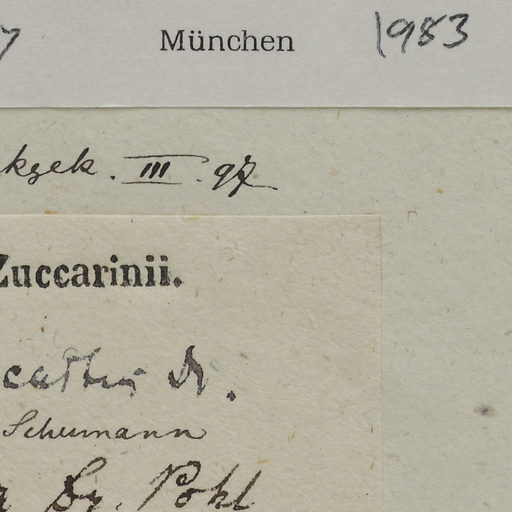 7 München 1983
kgek. III. 97
Zuccarinii.
Schumann
Dr. Pohl